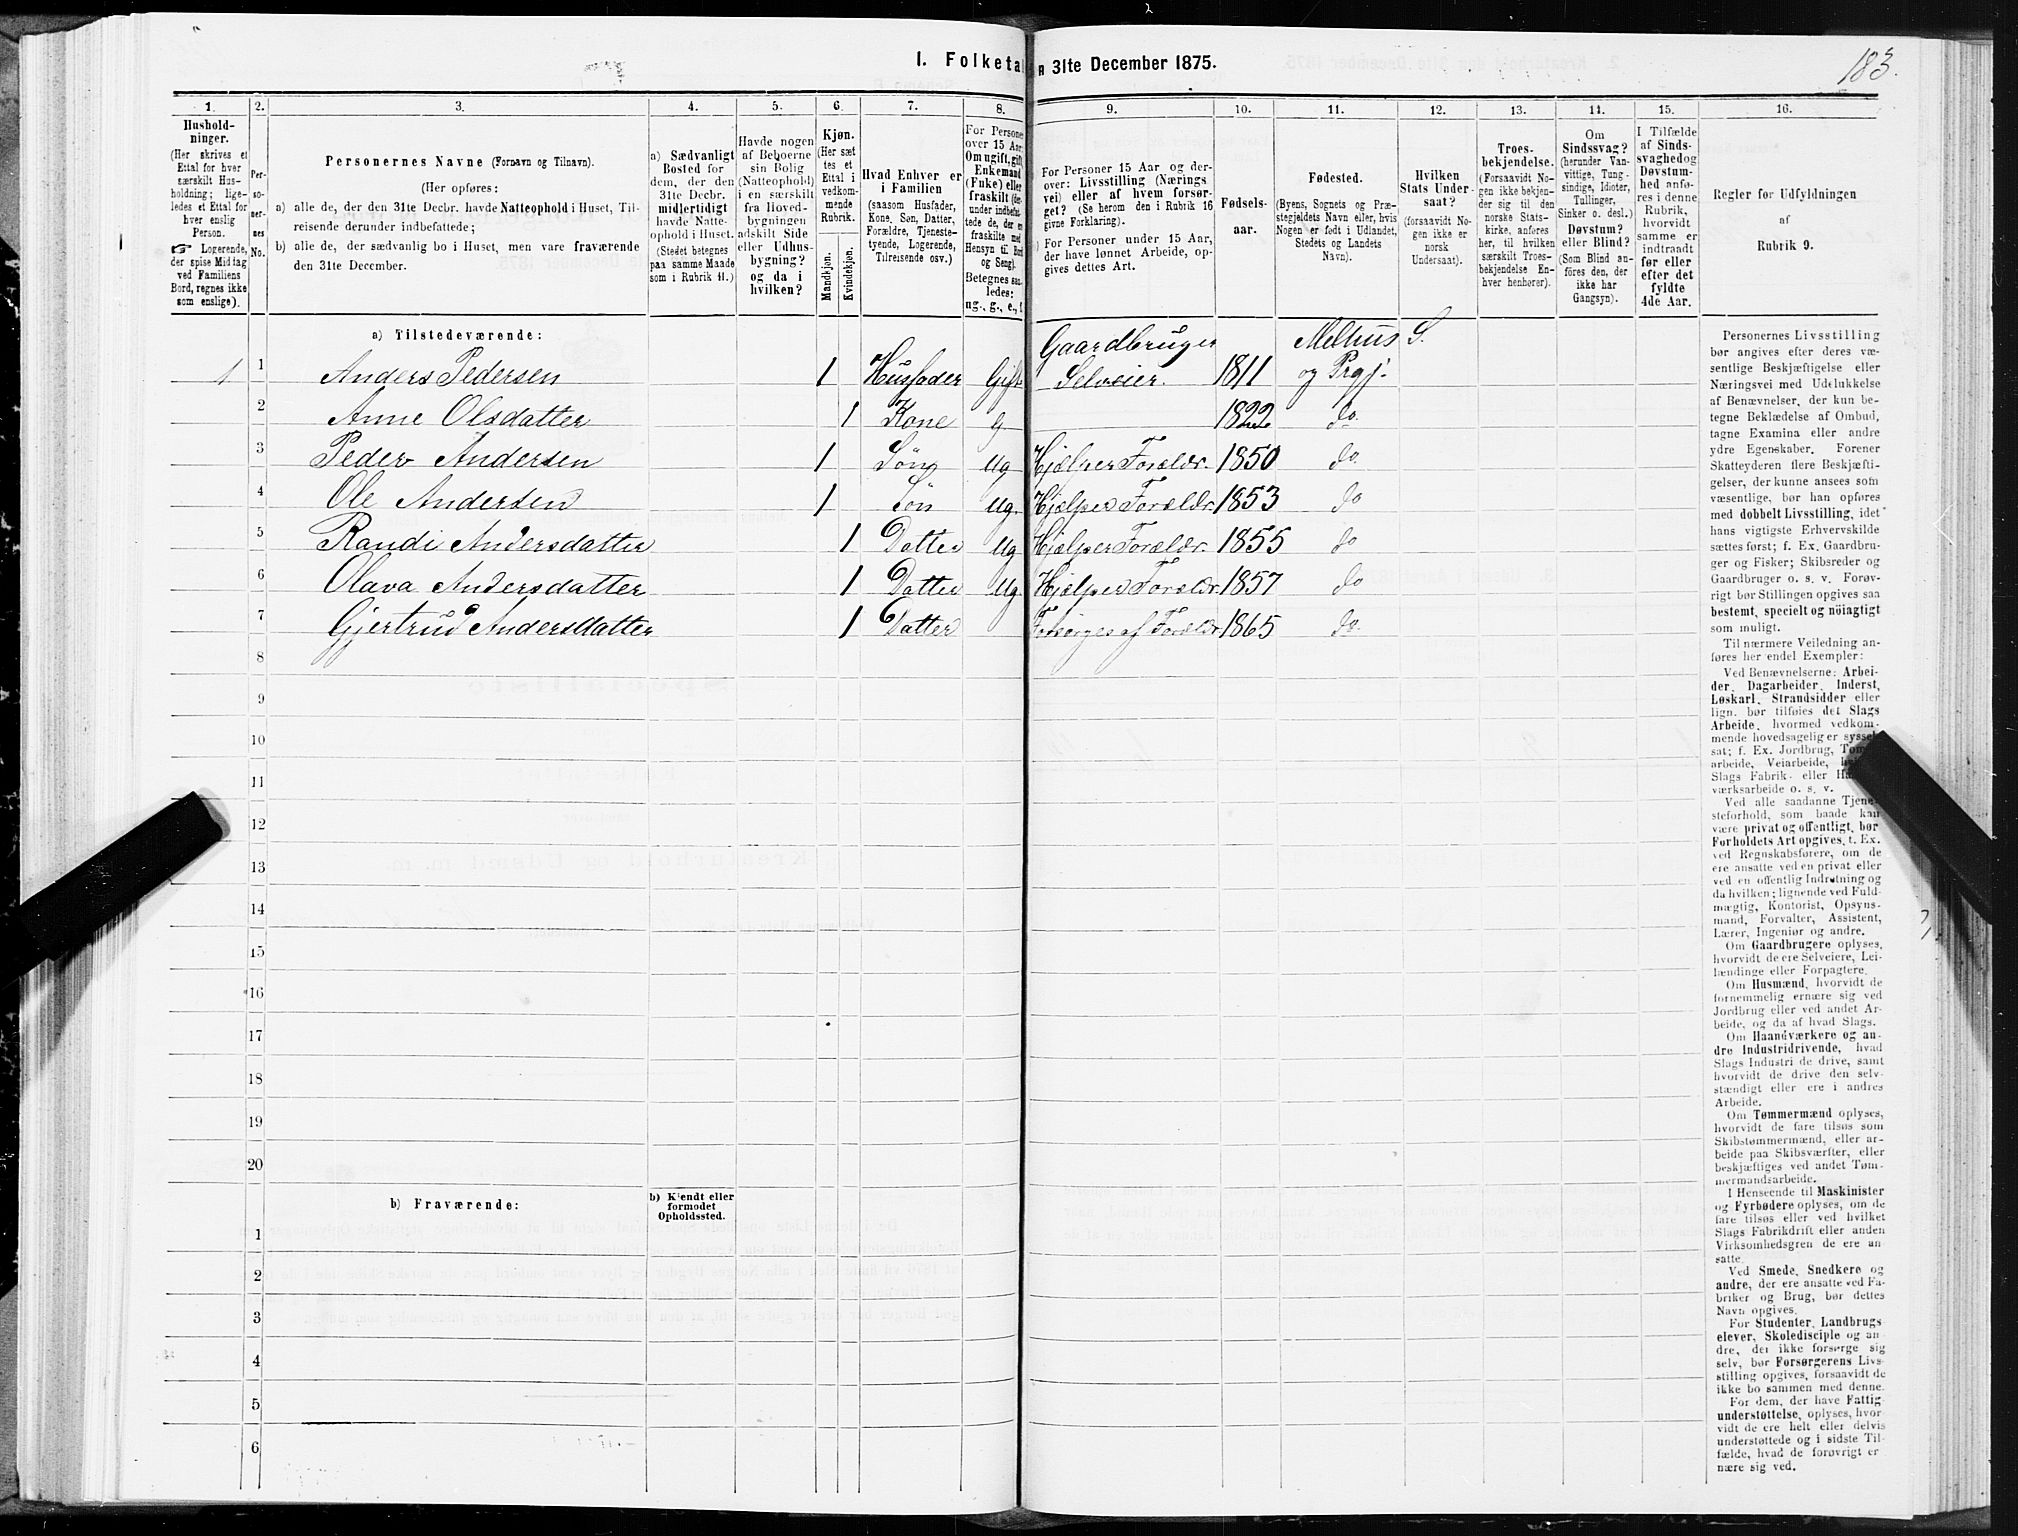 183.
I. Folketal
R 31te December 1875.
1. 2. 3. 4. 5. 6. 7. 8. 9. 10. 11. 12. 13. 14. 15. 16.
Hushold-
ninger.
(Her skrives et
Ettal for hver
særskilt Hus-
holdning; lige-
ledes et Ettal for
hver enslig
Person.
☞ Logerende,
der spise Middag
ved Familiens
Bord, regnes ikke
som enslige).
Per-
so-
ner-
nes
No.
Personernes Navne (Fornavn og Tilnavn).
(Her opføres:
a) alle de, der den 31te Decbr. havde Natteophold i Huset, Til-
reisende derunder indbefattede;
b) alle de, der sædvanlig bo i Huset, men vare fraværende
den 31te December.
a) Sædvanligt
Bosted for
dem, der den
31te Decbr.
midlertidigt
havde Natte-
ophold i Huset.
(Stedet betegnes
paa samme Maade
som i Rubrik 11.)
Havde nogen
af Beboerne
sin Bolig
(Natteophold)
i en særskilt
fra Hoved-
bygningen
adskilt Side
eller Udhus-
bygning?
og da i
hvilken?
Kjøn.
(Her sæt
tes et
Ettal i
vedkom-
mende
Rubrik.
Mandkjøn.
Kvindekjøn.
Hvad Enhver er
i Familien
(saasom Husfader,
Kone, Søn, Datter,
Forældre, Tjeneste-
tyende, Logerende,
Tilreisende osv.)
For Personer
over 15 Aar:
Om ugift, gift,
Enkemand
(Enke) eller
fraskilt
fraskilte med
Hensyn til Bord
og Seng).
Betegnes saa-
ledes:
ug., g., e., f.
For Personer 15 Aar og der-
over: Livsstilling (Nærings
vei) eller af hvem forsør-
get? (Se herom den i Rubrik 16
givne Forklaring).
For Personer under 15 Aar,
der have lønnet Arbeide, op-
gives dettes Art.
Fødsels-
aar.
Fødested.
(Byens, Sognets og Præ-
stegjeldets Navn eller, hvis
Nogen er født i Udlandet,
Stedets og Landets
Navn).
Hvilken
Stats Under-
saat?
(forsaavidt No-
gen ikke er
norsk
Undersaat).
Troes-
bekjendelse.
(Forsaavidt No-
gen ikke bekjen-
der sig til den
norske Stats-
kirke, anføres
her, til hvilken
særskilt Troes-
bekjendelse En-
hver henhører).
Om
Sindssvag?
(herunder Van-
vittige, Tung-
sindige, Idioter,
Tullinger,
Sinker o. desl.)
Døvstum?
eller Blind?
(Som Blind an-
føres den, der
ikke har
Gangsyn).
I Tilfælde
af Sinds-
svaghed og
Døvstum-
hed anfø-
res i denne
Rubrik,
hvorvidt
samme er
indtraadt
før eller
efter det
fyldte
4de Aar.
Regler for Udfyldningen
af
Rubrik 9.
a) Tilstedeværende:
Gaardbruger Melhus S.
1 1 Anders Pedersen 1 Husfader Gift Selveier. 1811 og Prgj.
2 Anne Olsdatter 1 Kone g 1822 do.
3 Peder Andersen 1 Søn ug Hjælper Forældr. 1850 do.
4 Ole Andersen 1 Søn ug. Hjælper Forældr. 1853 do
5 Randi Andersdatter 1 Datter ug Hjælper Forældr. 1855 do
6 Olava Andersdatter 1 Datter ug. Hjælper Forældr. 1857 do
7 Gjertrud Andersdatter 1 Datter Forsørges af Forældr 1865 do.
8
9
10
11
12
13
14
15
16
17
18
19
20
b) Fraværende:
b) Kjendt eller
formodet
Opholdssted.
1
2
3
4
5
6
Personernes Livsstilling
bør angives efter deres væ-
sentlige Beskjæftigelse eller
Næringsvei med Udelukkelse
af Benævnelser, der kun be-
tegne Beklædelse af Ombud,
tagne Examina eller andre
ydre Egenskaber. Forener
Skatteyderen flere Beskjæfti-
gelser, der kunne ansees som
væsentlige, bør han opføres
med dobbelt Livsstilling, idet
hans vigtigste Erhvervskilde
sættes først; f. Ex. Gaardbru-
ger og Fisker; Skibsreder og
Gaardbruger o. s. v. Forøv-
rigt bør Stillingen opgives saa
bestemt, specielt og nöiagtigt
som muligt.
Til nærmere Veiledning an-
føres her endel Exempler:
Ved Benævnelserne: Arbei-
der, Dagarbeider, Inderst,
Løskarl, Strandsidder eller
lign. bør tilføies det Slags
Arbeide, hvormed vedkom-
mende hovedsagelig er syssel-
sat; f. Ex. Jordbrug, Tøm-
arbeide, Veiarbeide,
Slags Fabrik- eller
værksarbeide o. s. v.
Ved alle saadanne Tjene-
steforhold, som baade kan
være privat og offentligt, bør
Forholdets Art opgives, t. Ex.
ved Regnskabsførere, om de
ere ansatte ved en privat eller
ved en offentlig Indretning og
da hvilken; lignende ved Fuld-
mægtig, Kontorist, Opsyns-
mand, Forvalter, Assistent,
Lærer, Ingeniør og andre.
Om Gaardbrugere oplyses,
hvorvidt de ere Selveiere, Lei-
lændinge eller Forpagtere.
Om Husmænd, hvorvidt de
fornemmelig ernære sig ved
Jordbrug eller ved andet Ar-
beide, og da af hvad Slags.
Om Haandværkere og an-
dre Industridrivende, hvad
Slags Industri de drive, samt
hvorvidt de drive den selv-
stændigt eller ere i andres
Arbeide.
Om Tømmermænd oplyses,
hvorvidt de fare tilsøs som
Skibstømmermænd, eller ar-
beide paa Skibsværfter, eller
beskjæftiges ved andet Tøm-
mermandsarbeide.
I Henseende til Maskinister
og Fyrbødere oplyses, om de
fare tilsøs eller ved hvilket
Slags Fabrikdrift eller anden
Virksomhedsgren de ere an-
satte.
Ved Smede, Snedkere og
andre, der ere ansatte ved Fa-
briker og Brug, bør dettes
Navn opgives.
For Studenter, Landbrugs-
elever, Skoledisciple og an-
dre, der ikke forsørge sig
selv, bør Forsørgerens Livs-
stilling opgives, forsaavidt de
ikke bo sammen med denne.
For dem, der have Fattig-
understøttelse, oplyses, hvor-
vidt de ere helt eller delvis
understøttede og i sidste Til-
fælde, hvad de forøvrigt er-
nære sig ved.